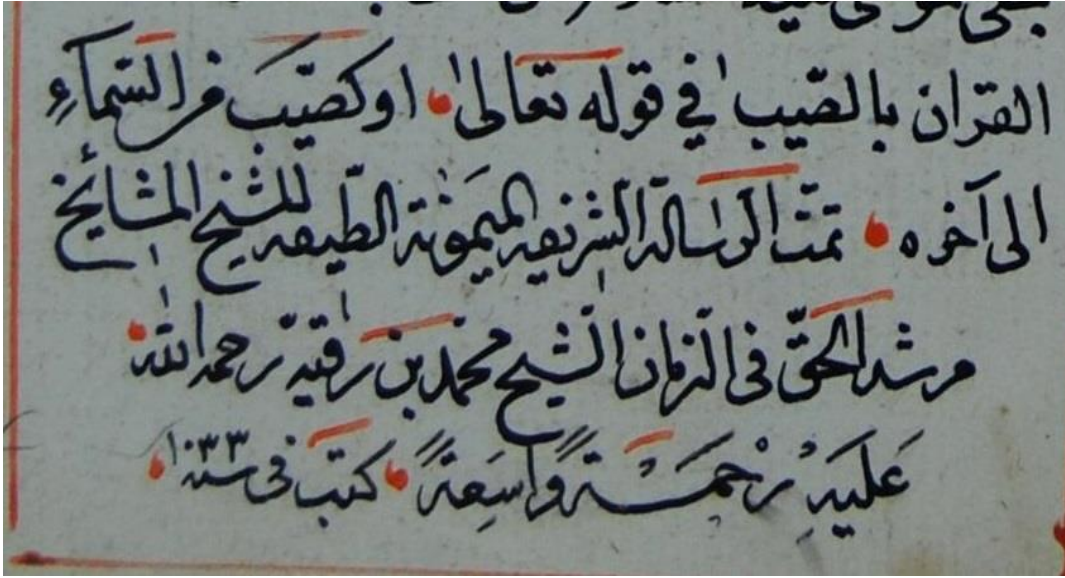 القرآن بالصّيب في قوله تعالى، او كصيّب من السّمآءِ
الى آخره، تمّت الرسالة الشريفه الميمونة الطيفه للشيخ المشايخ
مرشد الحقّ فى الزمان الشيخ محمد بن رقيه رحمه الله
عَليَهِ رحمَــةً واسِعةً، كتب فى سنة ١٠٣٣